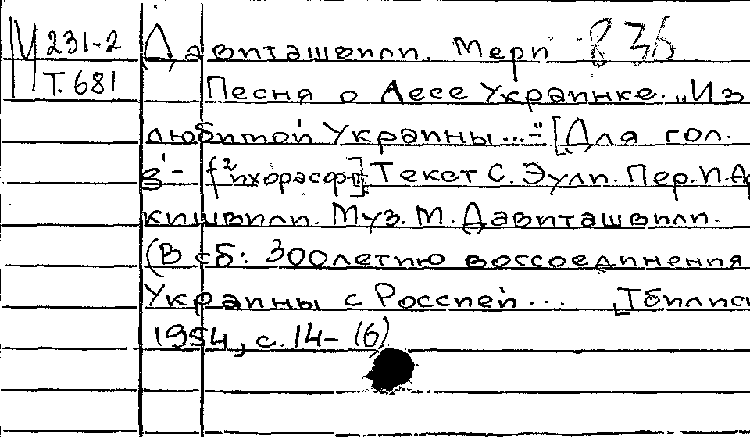 М 231-2 Давиташвили. Мери 836
Т. 681 Песня о Лесе Украинке. „Из
любимой Украины..." [Для гол.
g'- f² и хора с ф-п]. Текст С. Эули. Пер. И. Ар
кишвили. Муз. М. Давиташвили.
(В сб: 300летию воссоединения
Украины с Россией... [Тбилис
1954, с. 14-16)